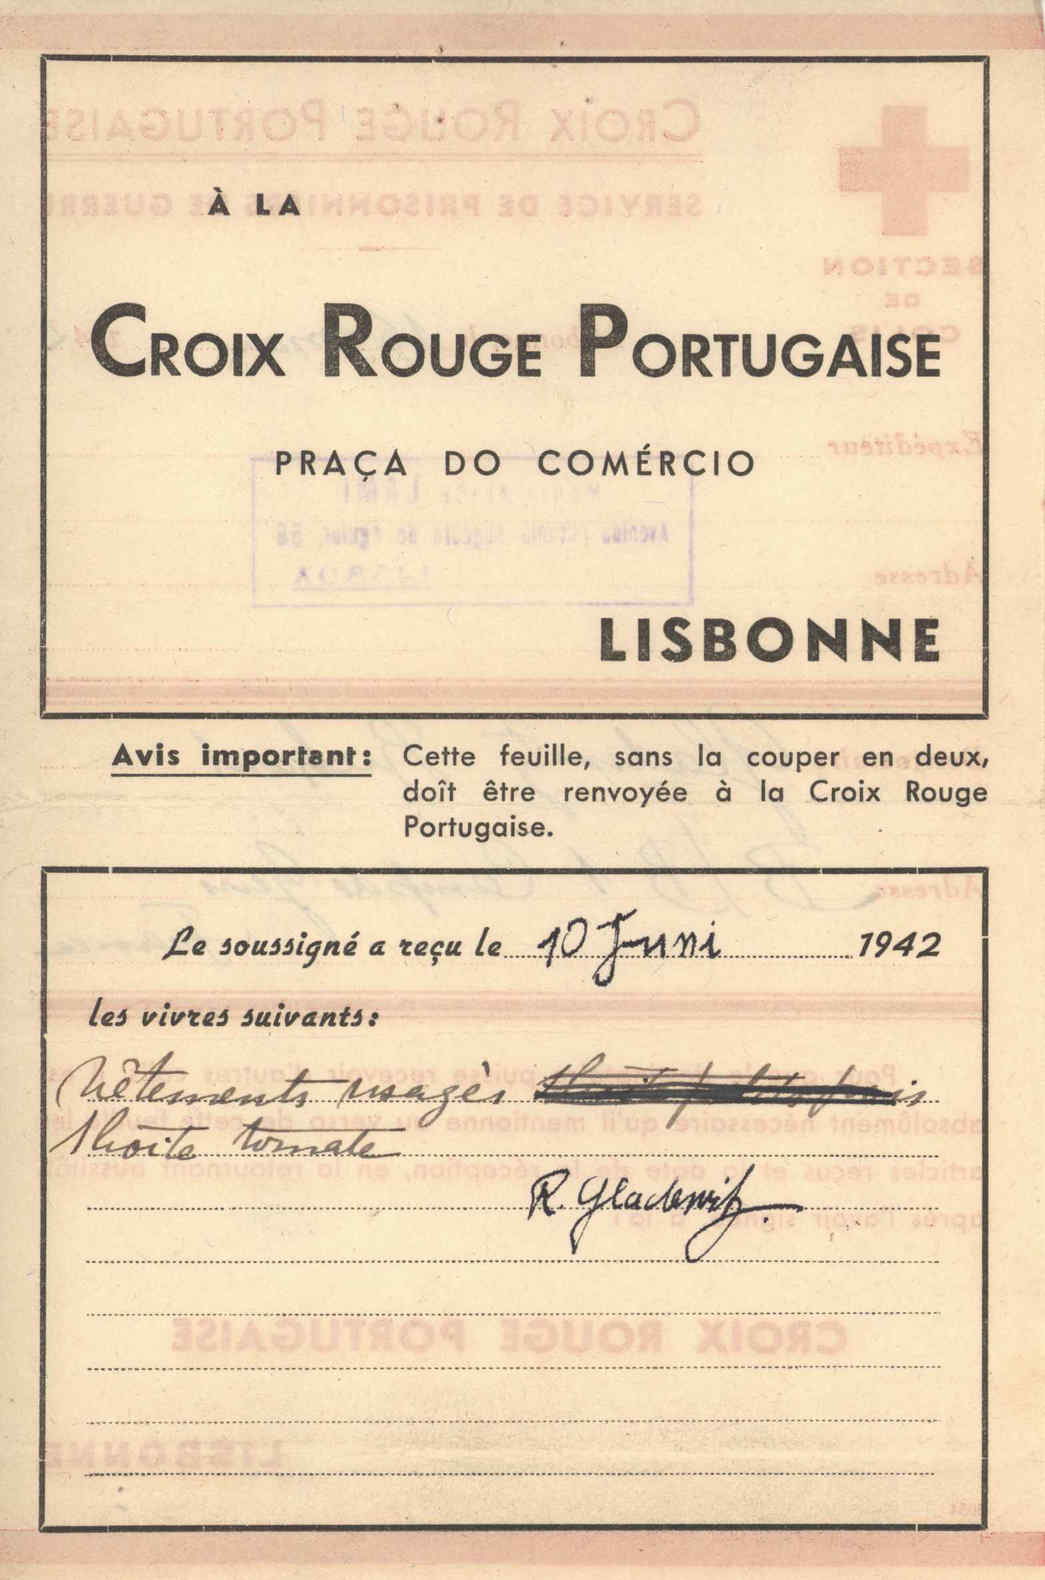 À LA
CROIX ROUGE PORTUGAISE
PRAÇA DO COMÉRCIO
LISBONNE
Avis important: Cette feuille, sans la couper en deux,
doît être renvoyée à la Croix Rouge
Portugaise.
Le soussigné a reçu le 10 Juni 1942
les vivres suivants:
Vêtements usagés
1 boîte tomate
R. Gladewitz.